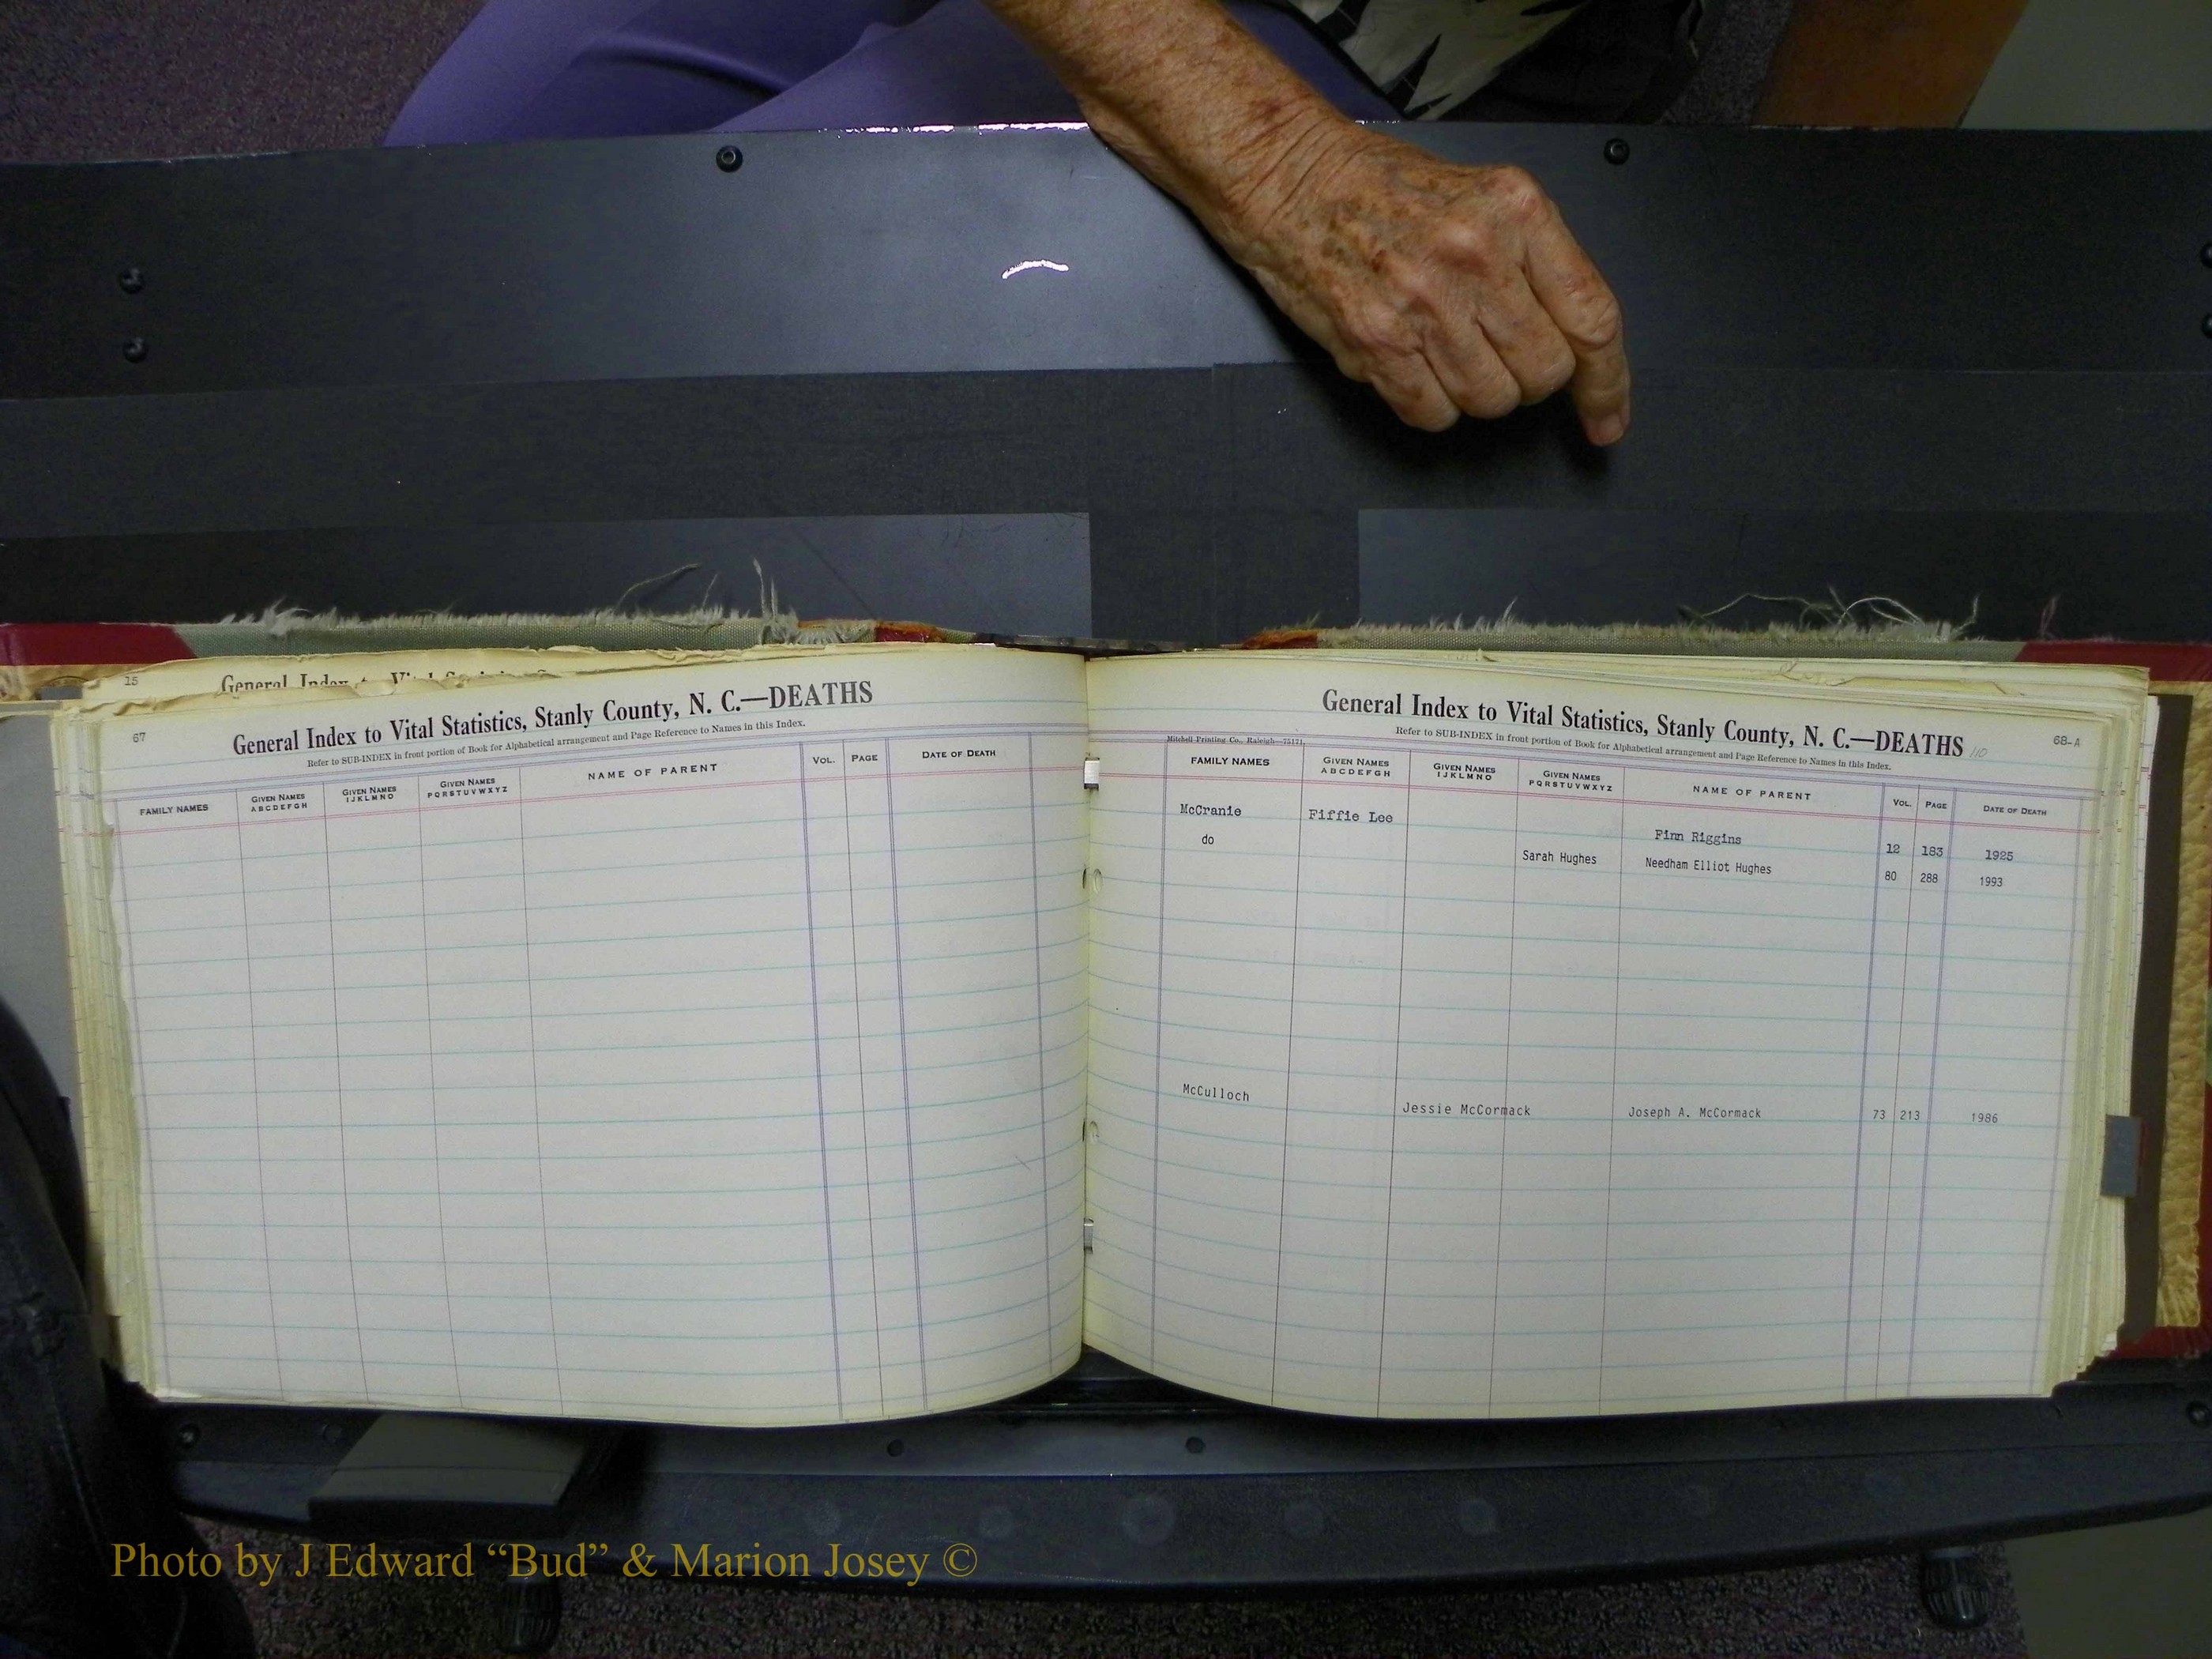 15
General Index to Vital Statistics
67
General Index to Vital Statistics, Stanly County, N. C.—DEATHS
Refer to SUB-INDEX in front portion of Book for Alphabetical arrangement and Page Reference to Names in this Index.
FAMILY NAMES GIVEN NAMES ABCDEFGH GIVEN NAMES IJKLMNO GIVEN NAMES PQRSTUVWXYZ NAME OF PARENT VOL. PAGE DATE OF DEATH
General Index to Vital Statistics, Stanly County, N. C.—DEATHS 110 68-A
Refer to SUB-INDEX in front portion of Book for Alphabetical arrangement and Page Reference to Names in this Index.
Mitchell Printing Co., Raleigh—75171
FAMILY NAMES GIVEN NAMES ABCDEFGH GIVEN NAMES IJKLMNO GIVEN NAMES PQRSTUVWXYZ NAME OF PARENT VOL. PAGE DATE OF DEATH
McCranie Fiffie Lee Finn Riggins 12 183 1925
do Sarah Hughes Needham Elliot Hughes 80 288 1993
McCulloch Jessie McCormack Joseph A. McCormack 73 213 1986
Photo by J Edward “Bud” & Marion Josey ©